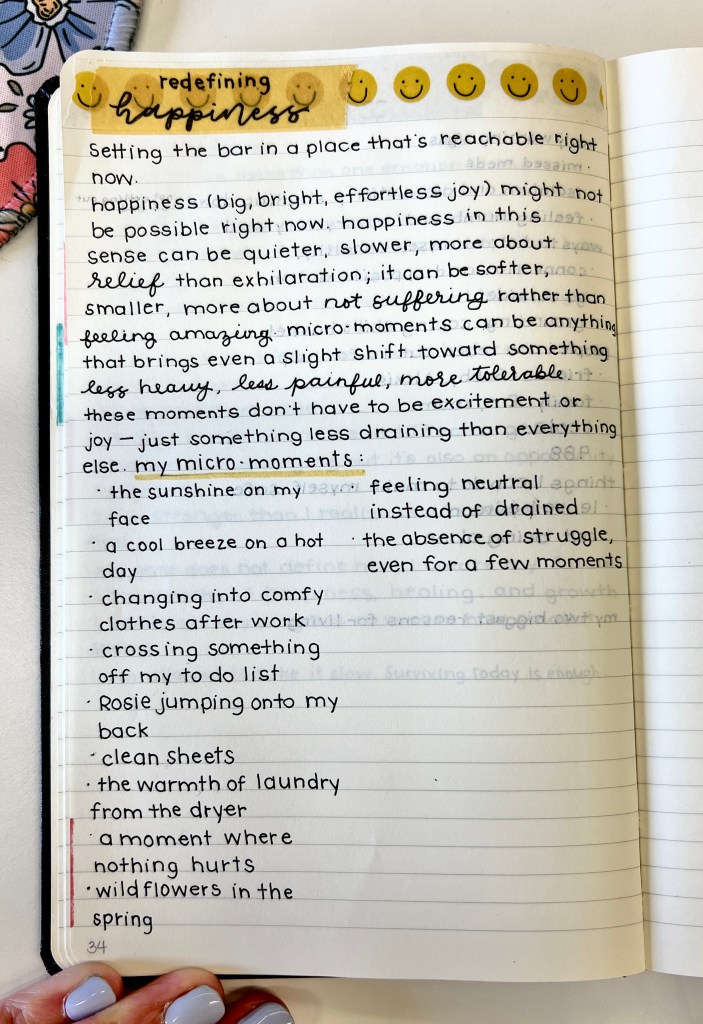 redefining
happiness
Setting the bar in a place that's reachable right
now.
happiness (big, bright, effortless joy) might not
be possible right now, happiness in this
sense can be quieter, slower, more about
relief than exhilaration; it can be softer,
smaller, more about not suffering rather than
feeling amazing. micro-moments can be anything
that brings even a slight shift toward something
less heavy, less painful, more tolerable.
these moments don't have to be excitement or
joy – just something less draining than everything
else. my micro-moments:
· the sunshine on my
face
· a cool breeze on a hot
day
· changing into comfy
clothes after work
· crossing something
off my to do list
· Rosie jumping onto my
back
· clean sheets
· the warmth of laundry
from the dryer
· a moment where
nothing hurts
· wildflowers in the
spring
· feeling neutral
instead of drained
· the absence of struggle,
even for a few moments
34